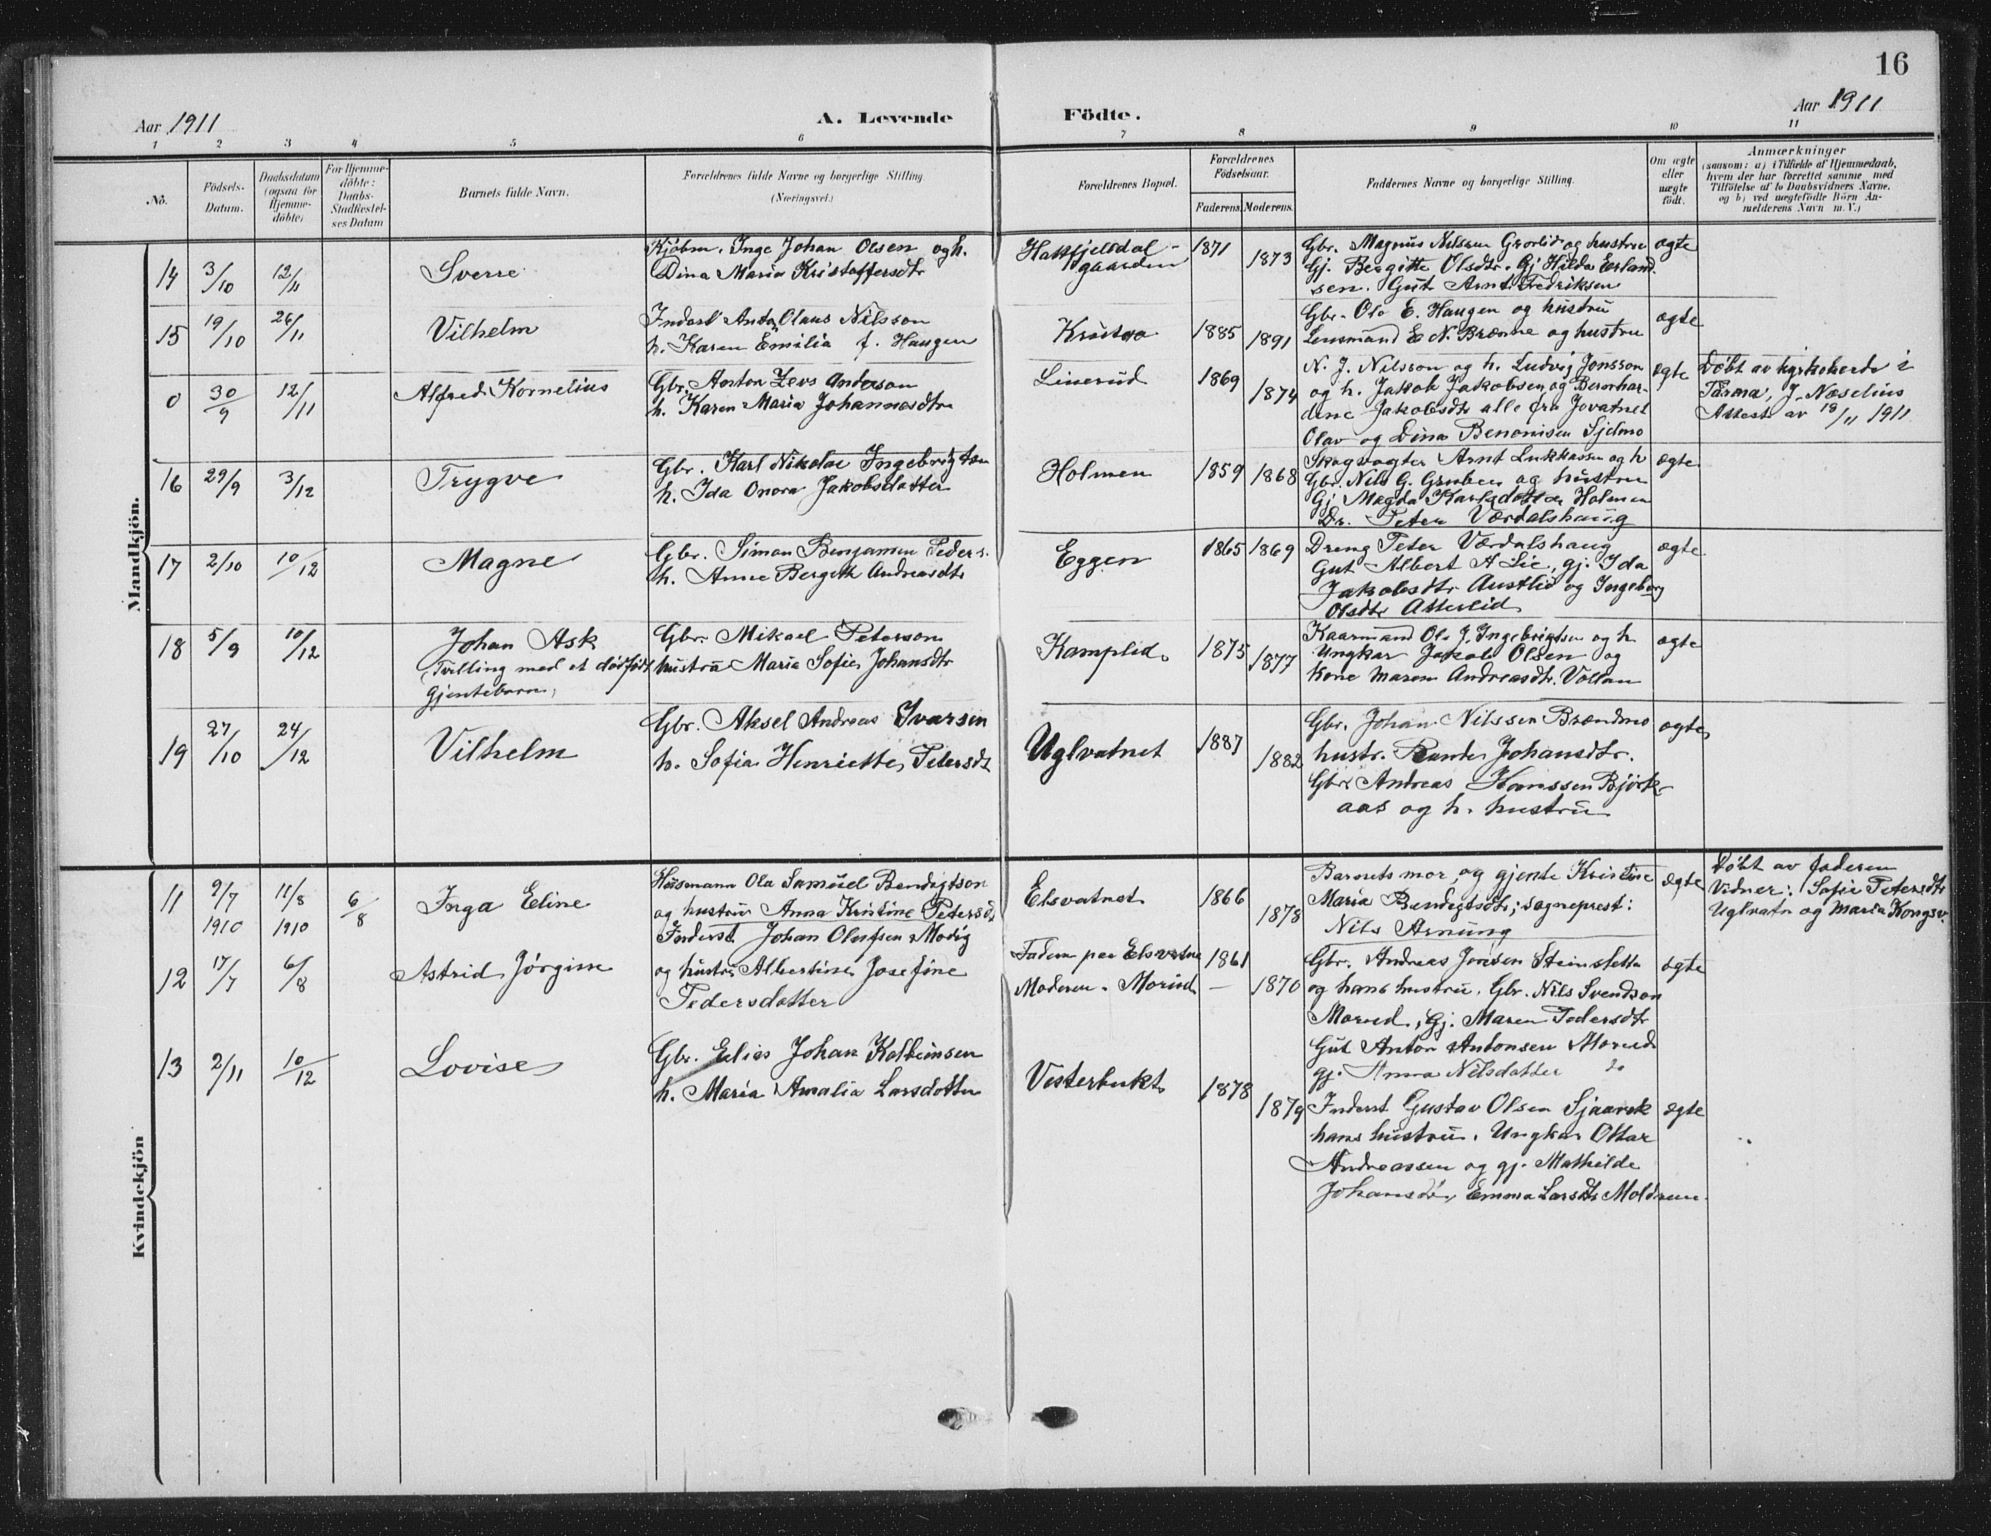 16
Aar 1911
A. Levende Födte.
Aar 1911
1 2 3 4 5 6 7 8 9 10 11
No.
Födsels-
Datum.
Daabsdatum
(ogsaa for
Hjemme-
döbte)
For Hjemme-
döbte:
Daabs-
Stadfæstel-
ses Datum
Barnets fulde Navn.
Forældrenes fulde Navne og borgerlige Stilling
(Næringsvei.)
Forældrenes Bopæl.
Forældrenes
Födselsaar.
Faderens. Moderens.
Faddernes Navne og borgerlige Stilling.
Om ægte
eller
uægte
födt.
Anmærkninger
(saasom: a) i Tilfælde af Hjemmedaab,
hvem der har forrettet samme med
Tilföielse af to Daabsvidners Navne.
og b) ved uægtefödte Börn An-
melderens Navn m. V.)
Mandkjön.
14 3/10 12/11 Sverre
Kjöbm. Inge Johan Olsen og h.
Dina Maria Kristoffersdtr
Hattfjelldal-
gaarden
1871 1873
Gbr. Magnus Nilssen Grorlid og hustru
Gj. Bergitte Olsdtr. Gj Hilda Erland
sen. Gut Arnt Fredriksen
ægte
15 19/10 26/11 Vilhelm
Inderst Anton Olaus Nilsson
h. Karen Emilia f. Haugen
1885 1891
Gbr. Ole E. Haugen og hustru
Lensmand E. N. Brænne og hustru
ægte
0 30/9 12/11 Alfred Kornelius
Gbr. Anton Zevs Anderson
h. Karen Maria Johannesdtr
Linerud
1869 1874
N. J. Nilsson og h. Ludvig Jonsson
og h. Jakob Jakobsen og Bernhar-
dine Jakobsdtr alle fra Jovatnet
Olav og Dina Benonisen Sjelmo
ægte
Döbt av kyrkoherde i
Tärna, J. Næselius
Attest av 19/11 1911
16 29/9 3/12 Trygve
Gbr. Karl Nikolai Ingebrigtsen
h. Ida Onora Jakobsdatter
Holmen
1859 1868
Skogvogter Arnt Lukkassen og h
Gbr. Nils G. Gruben og hustru
Gj Magda Karlsdatter Holmen
Dr. Peter Værdalshaug
ægte
17 2/10 10/12 Magne
Gbr. Simon Benjamin Peders.
h. Anne Bergitte Andreasdtr
Eggen
1865 1869
Dreng Peter Værdalshaug
Gut Albert A Lie, gj. Ida
Jakobsdtr Austlid og Ingeborg
Olsdtr Atterlid
ægte
18 5/9 10/12 Johan Ask
(Tvilling med et dödfödt
Gjentebarn)
Gbr. Mikael Peterson
hustru Maria Sofie Johansdtr
Kamplid
1875 1877
Kaarmand Ole J. Ingebrigtsen og h.
Ungkar Jakob Olsen og
Kone Maren Andreasdtr. Vollan
ægte
19 27/10 24/12 Vilhelm
Gbr. Aksel Andreas Ivarsen
h. Sofia Henriette Petersdtr
Uglvatnet
1887 1882
Gbr. Johan Nilssen Brændmo
hustr. Johansdtr.
Gbr. Andreas Hanssen Björk-
aas og h. hustru
ægte
Kvindekjön
11 9/7 1910 11/8 1910 6/8 Inga Eline
Husmann Ole Samuel Bendigtson
og hustru Anna Kristine Petersdtr
Elsvatnet
1866 1878
Barnets mor og gjente Kristine
Maria Bendigtsdtr; sogneprest:
Nils Arnung
ægte
Döbt av faderen
Vidner: Sofie Petersdtr
Uglvatn og Maria Kongsv.
12 17/7 6/8 Astrid Jörgine
Inderst Johan Olufsen Modig
og hustru Albertine Josefine
Pedersdatter
Faderen paa Elsvatnet
Moderen - Morud
1861 1870
Gbr. Andreas Jonsen Steinsletta
og hans hustru. Gbr. Nils Svendson
Morud, Gj. Maren Pedersdtr
Gut Anton Antonsen Morud
gj. Anna Nilsdatter do
ægte
13 2/11 10/12 Lovise
Gbr. Elias Johan Kolbeinsen
h. Maria Amalia Larsdatter
Vesterbukt
1878 1879
Inderst Gustav Olsen Sjaavik
hans hustru. Ungkar Ottar
Andreassen og gj. Mathilde
Johansdtr, Emma Larsdtr Moldrem
ægte